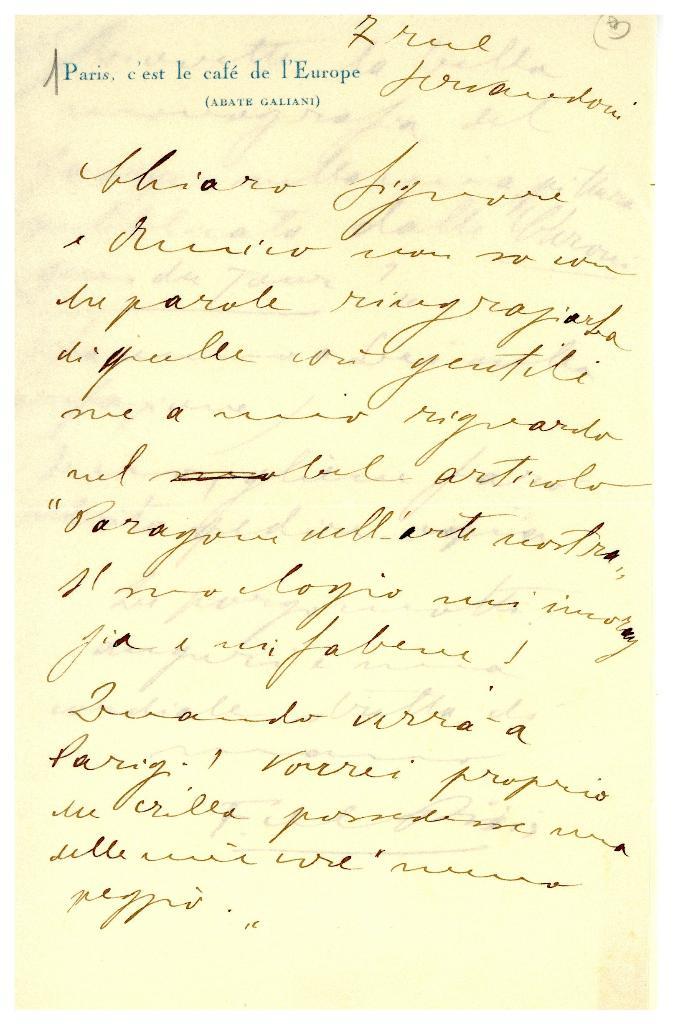 7 rue
Servandoni
Paris, c'est le café de l'Europe
(ABATE GALIANI)
Chiaro Signore
e Amico non so con
che parole ringraziarla
di quelle così gentili
me a mio riguardo
nel bel articolo
"Paragone dell'arte nostra"
Il suo elogio mi incorag
gia e mi fa bene!
Quando verrà a
Parigi! Vorrei proprio
che ella possedesse una
delle mie cose "meno
peggio."